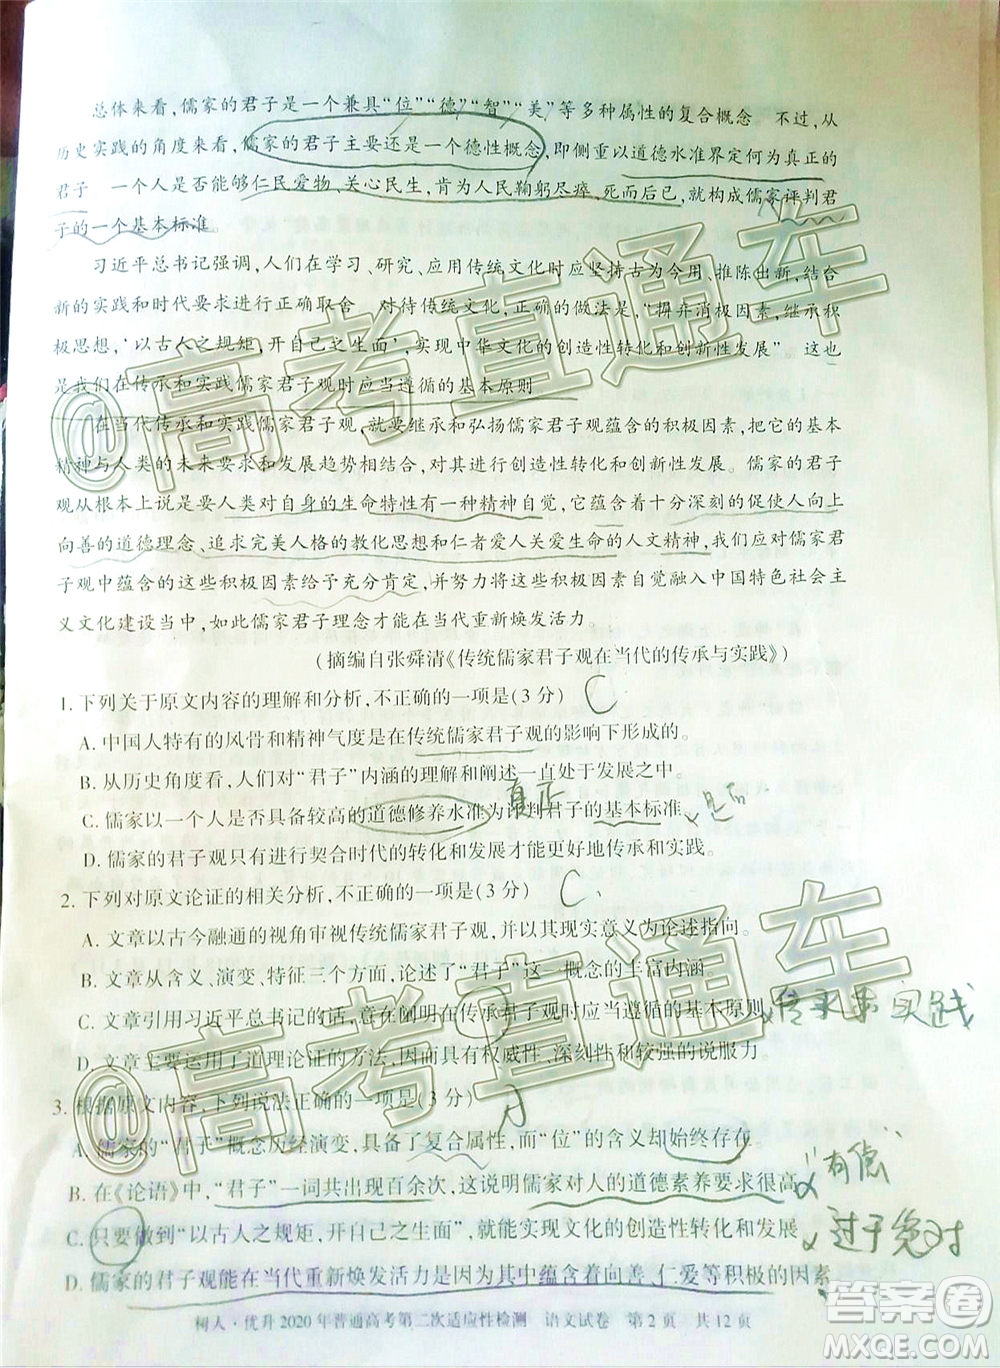 总体来看,儒家的君子是一个兼具“位”“德”“智”“美”等多种属性的复合概念 不过,从
历史实践的角度来看,儒家的君子主要还是一个德性概念,即侧重以道德水准界定何为真正的
君子 一个人是否能够仁民爱物,关心民生,肯为人民鞠躬尽瘁,死而后已,就构成儒家评判君
子的一个基本标准。
习近平总书记强调,人们在学习、研究、应用传统文化时应坚持古为今用、推陈出新,结合
新的实践和时代要求进行正确取舍 对待传统文化,正确的做法是,“摒弃消极因素,继承积
极思想,‘以古人之规矩,开自己之生面’,实现中华文化的创造性转化和创新性发展”。这也
是我们在传承和实践儒家君子观时应当遵循的基本原则
在当代传承和实践儒家君子观,就要继承和弘扬儒家君子观蕴含的积极因素,把它的基本
精神与人类的未来要求和发展趋势相结合,对其进行创造性转化和创新性发展。儒家的君子
观从根本上说是要人类对自身的生命特性有一种精神自觉,它蕴含着十分深刻的促使人向上
向善的道德理念、追求完美人格的教化思想和仁者爱人关爱生命的人文精神,我们要对儒家君
子观中蕴含的这些积极因素给予充分肯定,并努力将这些积极因素自觉融入中国特色社会主
义文化建设当中,如此儒家君子理念才能在当代重新焕发活力。
(摘编自张舜清《传统儒家君子观在当代的传承与实践》)
1. 下列关于原文内容的理解和分析,不正确的一项是(3分) C
A. 中国人特有的风骨和精神气度是在传统儒家君子观的影响下形成的。
B. 从历史角度看,人们对“君子”内涵的理解和阐述一直处于发展之中。
真正
C. 儒家以一个人是否具备较高的道德修养水准为评判君子的基本标准
D. 儒家的君子观只有进行契合时代的转化和发展才能更好地传承和实践。
2. 下列对原文论证的相关分析,不正确的一项是(3分) C
A. 文章以古今融通的视角审视传统儒家君子观,并以其现实意义为论述指向。
B. 文章从含义、演变、特征三个方面,论述了“君子”这一概念的丰富内涵。
C. 文章引用习近平总书记的话,意在阐明在传统君子观时应当遵循的基本原则 传承和实践
D. 文章主要运用了道理论证的方法,因而具有权威性、深刻性和较强的说服力。
3. 根据原文内容,下列说法正确的一项是(3分) A
A. 儒家的“君子”概念历经演变,具备了复合属性,而“位”的含义却始终存在。
B. 在《论语》中,“君子”一词共出现百余次,这说明儒家对人的道德素养要求很高 “有德”
C. 只要做到“以古人之规矩,开自己之生面”,就能实现文化的创造性转化和发展 过于绝对
D. 儒家的君子观能在当代重新焕发活力是因为其中蕴含着向善、仁爱等积极的因素
树人·优升2020年普通高考第二次适应性检测 语文试卷 第2页 共12页
@高考直通车
@高考直通车
答案圈
MXQE.COM